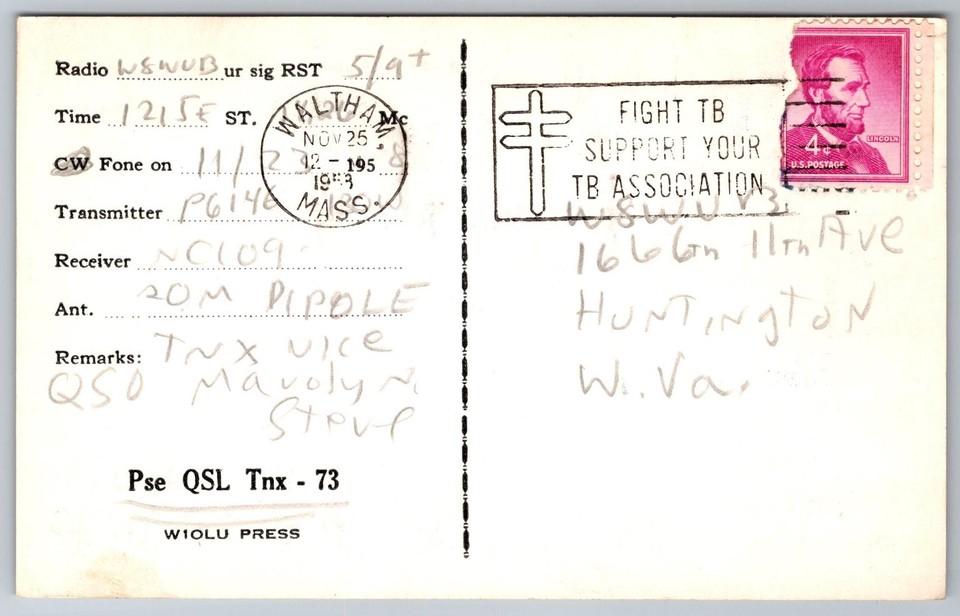 Radio W8WUB ur sig RST 5/9+
Time 1215E ST. Mc
CW Fone on 11/23 8
Transmitter
Receiver NC109
Ant. 20M DIPOLE
Remarks: TNX
QSO
Steve
Pse QSL Tnx - 73
W1OLU PRESS
WALTHAM,
NOV 25
12 - 195
1958
MASS.
FIGHT TB
SUPPORT YOUR
TB ASSOCIATION
LINCOLN
4¢
U.S. POSTAGE
1666th 11th Ave
HUNTINgtoN
W. Va.